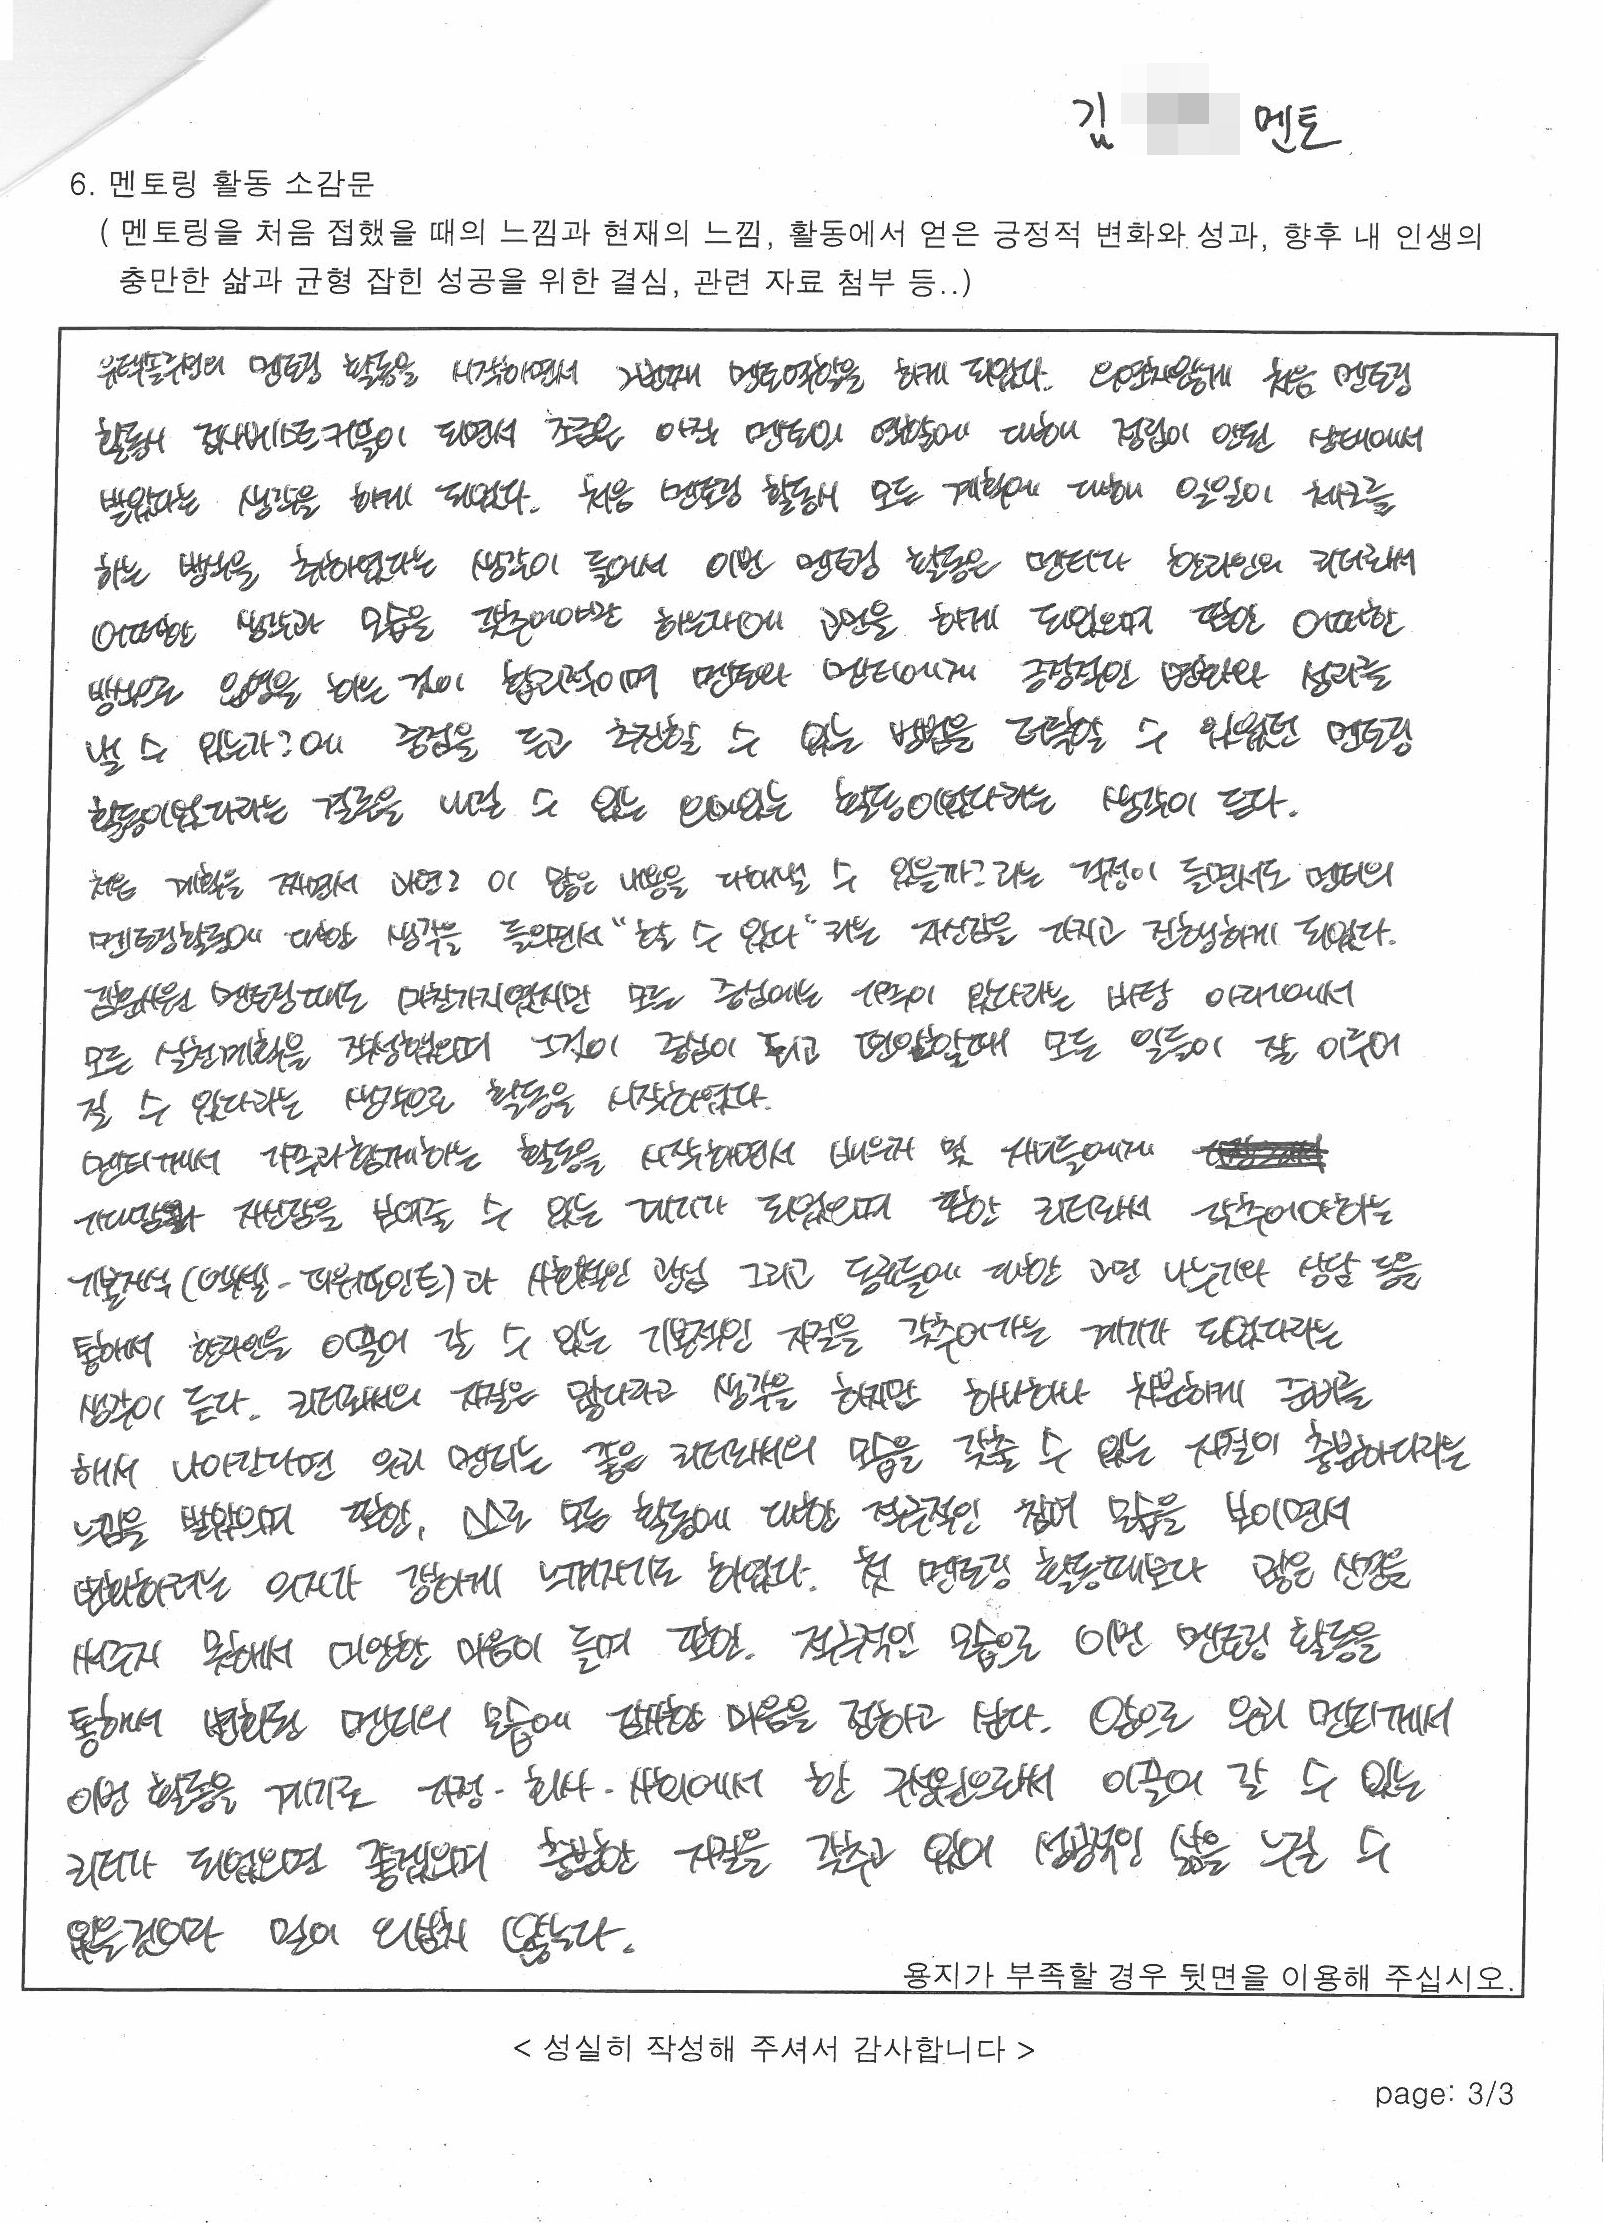 김 멘토
6. 멘토링 활동 소감문
( 멘토링을 처음 접했을 때의 느낌과 현재의 느낌, 활동에서 얻은 긍정적 변화와 성과, 향후 내 인생의
충만한 삶과 균형 잡힌 성공을 위한 결심, 관련 자료 첨부 등..)
멘토링 활동을 시작하면서 2번째 멘토역할을 하게 되었다. 처음 멘토링
활동시 되면서 조금은 아직 멘토의 역할에 대해 정립이 안된 상태에서
받았다는 생각을 하게 되었다. 처음 멘토링 활동시 모든 계획에 대해 일일이 체크를
하는 방식을 취하였다는 생각이 들어서 이번 멘토링 활동은 멘티가 한라인의 리더로써
어떠한 생각과 모습을 갖추어야만 하는지에 고민을 하게 되었으며 또한 어떠한
방식으로 운영을 하는 것이 합리적이며 멘토와 멘티에게 긍정적인 변화와 성과를
낼 수 있는가?에 중점을 두고 추진할 수 있는 방법을 터득할 수 있었던 멘토링
활동이었다라는 결론을 내릴 수 있는 의미있는 활동이었다라는 생각이 든다.
처음 계획을 짜면서 과연? 이 많은 내용을 다해낼 수 있을까?라는 걱정이 들면서도 멘티의
멘토링활동에 대한 생각을 들으면서 "할 수 있다"라는 자신감을 가지고 진행하게 되었다.
멘토링때도 마찬가지였지만 모든 중심에는 가족이 있다라는 바탕 아래에서
모든 실천계획을 작성했으며 그것이 중심이 되고 편안할때 모든 일들이 잘 이루어
질 수 있다라는 생각으로 활동을 시작하였다.
멘티께서 가족과함께하는 활동을 시작하면서 배우자 및 자녀들에게
자신감을 심어줄 수 있는 계기가 되었으며 또한 리더로써 갖추어야하는
기본지식(엑셀-파워포인트)과 사회적인 관심 그리고 동료들에 대한 고민 나누기와 상담 등을
통해서 한라인을 이끌어 갈 수 있는 기본적인 자질을 갖추어가는 계기가 되었다라는
생각이 든다. 리더로써의 자질은 많다라고 생각을 하지만 하나하나 차분하게 준비를
해서 나아간다면 우리 멘티는 좋은 리더로써의 모습을 갖출 수 있는 자질이 충분하다라는
느낌을 받았으며 또한, 스스로 모든 활동에 대한 적극적인 참여 모습을 보이면서
변화하려는 의지가 강하게 느껴지기도 하였다. 첫 멘토링 활동때보다 많은 신경을
써주지 못해서 미안한 마음이 들며 또한. 적극적인 모습으로 이번 멘토링 활동을
통해서 변화된 멘티의 모습에 감사한 마음을 전하고 싶다. 앞으로 우리 멘티께서
이번 활동을 계기로 가정-회사-사회에서 한 구성원으로써 이끌어 갈 수 있는
리더가 되었으면 좋겠으며 충분한 자질을 갖추고 있어 성공적인 삶을 누릴 수
있을것이라 믿어 의심치 않는다.
용지가 부족할 경우 뒷면을 이용해 주십시오.
< 성실히 작성해 주셔서 감사합니다 >
page: 3/3